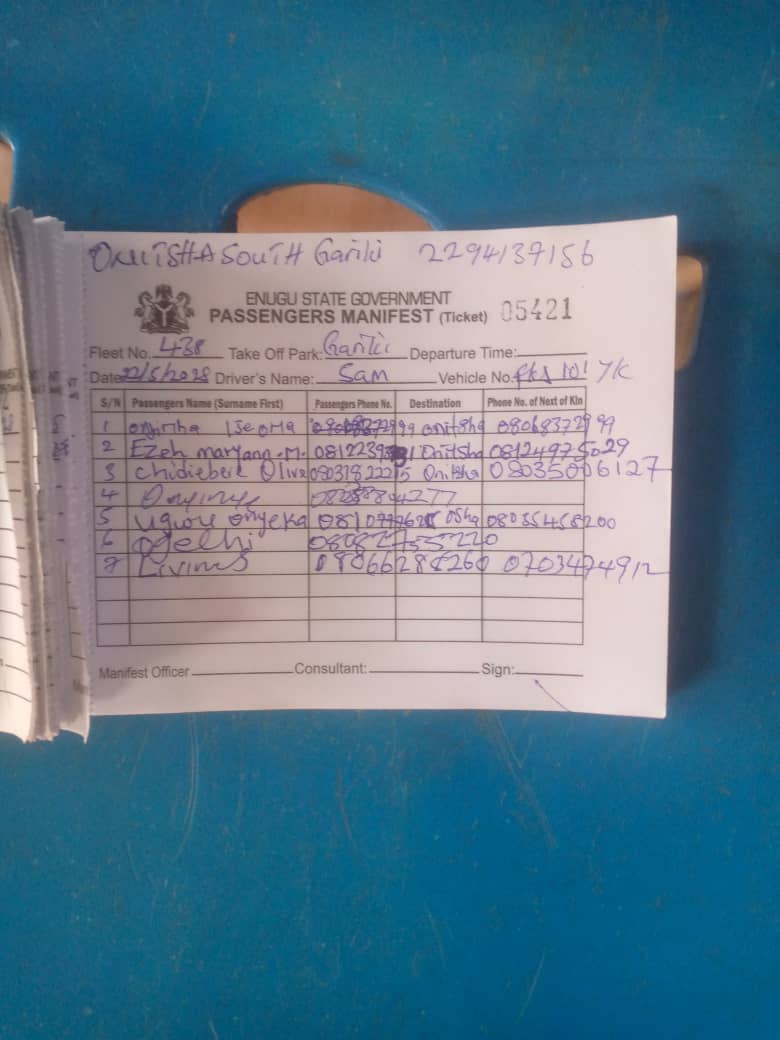 ONITSHA SOUTH Gariki 2294137156
ENUGU STATE GOVERNMENT
PASSENGERS MANIFEST (Ticket) 05421
Fleet No. 438 Take Off Park: Gariki Departure Time:
Date 22/5/2025 Driver's Name: Sam Vehicle No.
S/N Passengers Name (Surname First) Passengers Phone No. Destination Phone No. of Next of Kin
1 Ifeoma onitsha 08068372999
2 Ezeh maryann .M. Onitsha 08124975029
3 Chidiebere Olive 08031822215 Onitsha 08035006127
4
5 Ugwu onyeka osha 08035458200
6 08082755220
7 Livinus 08066288260 0703474912
Manifest Officer Consultant: Sign: